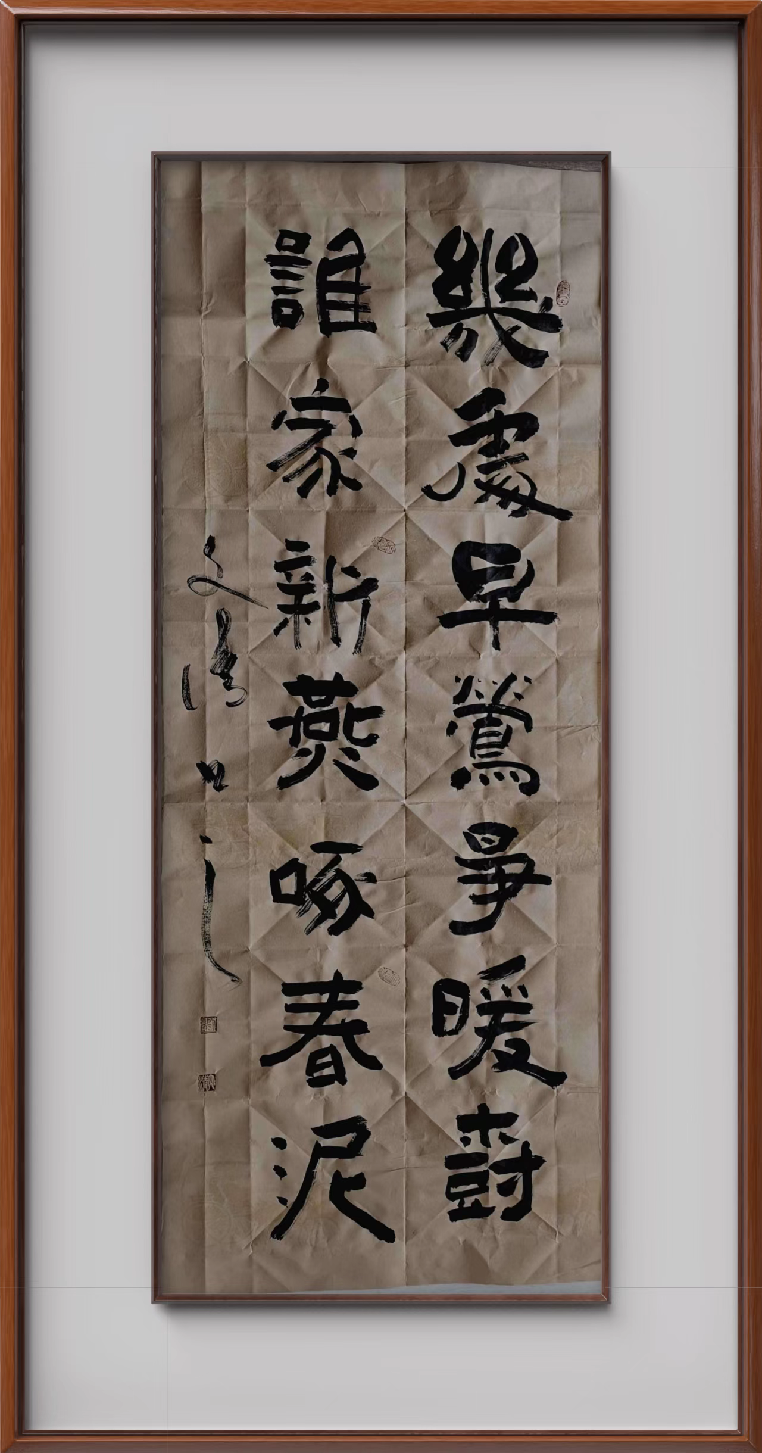 幾處早鶯爭暖樹
誰家新燕啄春泥